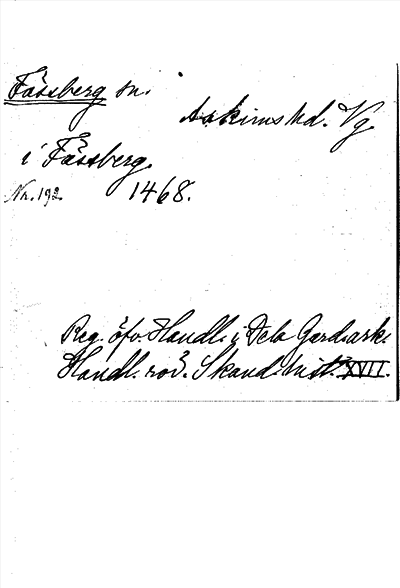 Fässberg sn.
Askims hd. Vg.
i Fässberg.
Nr. 192. 1468.
Reg. öfv. Handl. i Dela Gard. ark.
Handl. rör. Skand. hist. XVII.